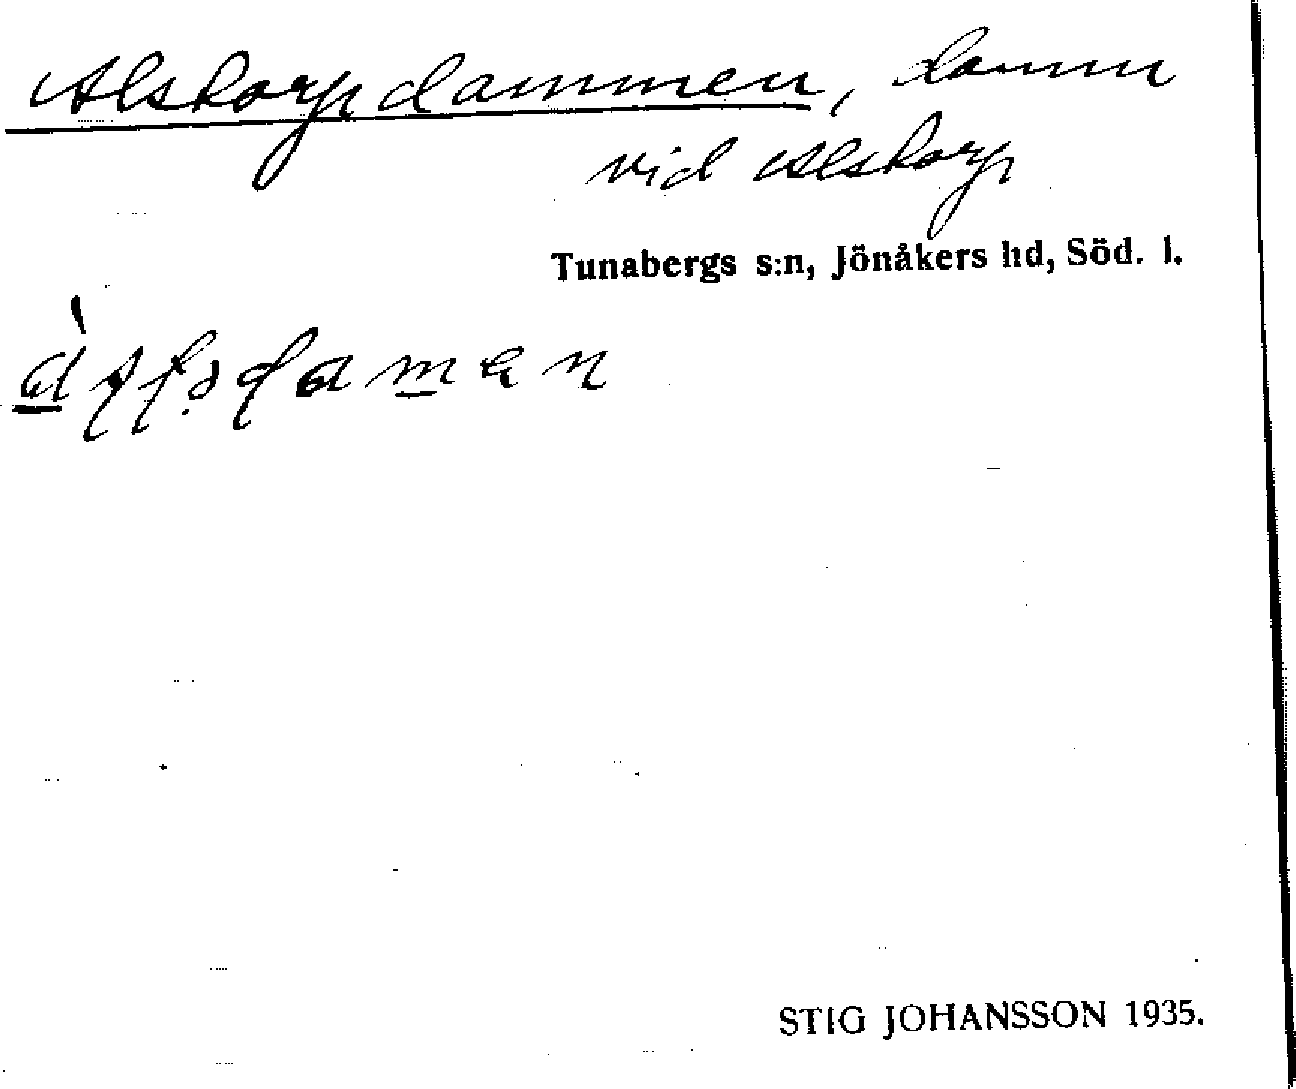 Alstorpdammen, damm
vid Alstorp
Tunabergs s:n, Jönåkers hd, Söd. l.
STIG JOHANSSON 1935.